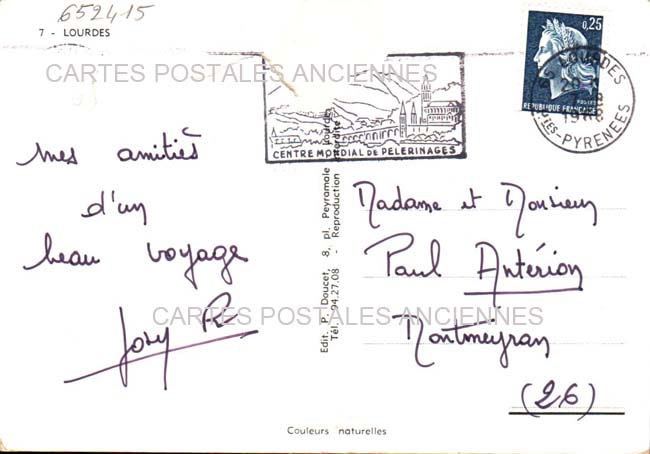 652415
7 - LOURDES
CARTES POSTALES ANCIENNES
0,25
POSTES
REPUBLIQUE FRANÇAISE
65 LOURDES
Htes-PYRENEES
CENTRE MONDIAL DE PELERINAGES
mes amitiés
d'un
beau voyage
Edit. P. Doucet, 8, pl. Peyramale Lourdes
Tél. 94.27.08 - Reproduction interdite
Madame et Monsieur
Paul Antérion
Montmeyran
(26)
CARTES POSTALES ANCIENNES
Couleurs naturelles